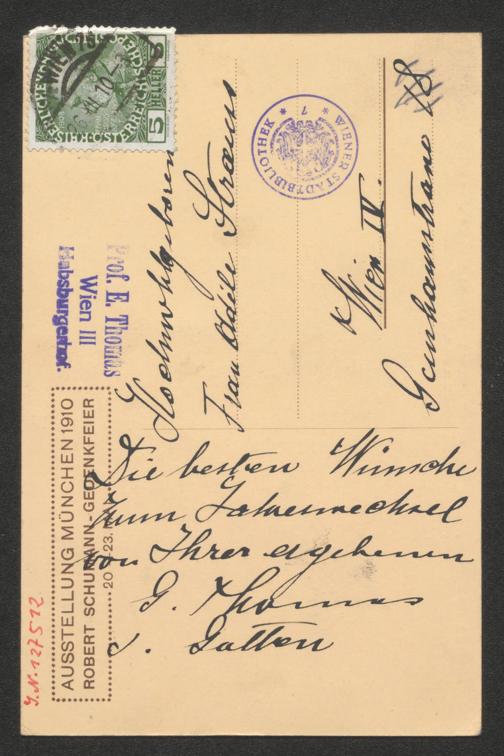 AUSSTELLUNG MÜNCHEN 1910
ROBERT SCHUMANN-GEDENKFEIER
20. 23.
Prof. E. Thomas
Wien III
Habsburgerhof.
5 HELLER 5
WIEN
XII.10
WIENER STADTBIBLIOTHEK
7
Hochwohlgeboren
Frau Adele Strauss
Wien IV.
Gusshausstrasse 18
Die besten Wünsche
zum Jahreswechsel
von Ihrer ergebenen
G. Thomas
s. Gatten
J.N. 127512